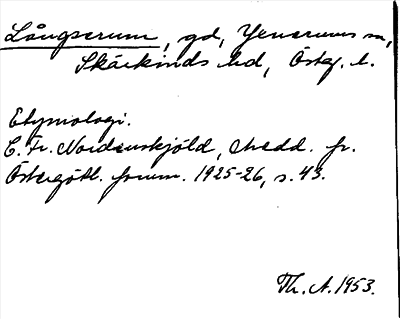 Långserum, gd, Yxnerums sn,
Skärkinds hd, Östg. l.
Etymologi.
C. Fr. Nordenskjöld, Medd. fr.
Östergötl. fornm. 1925-26, s. 43.
Th. A. 1953.